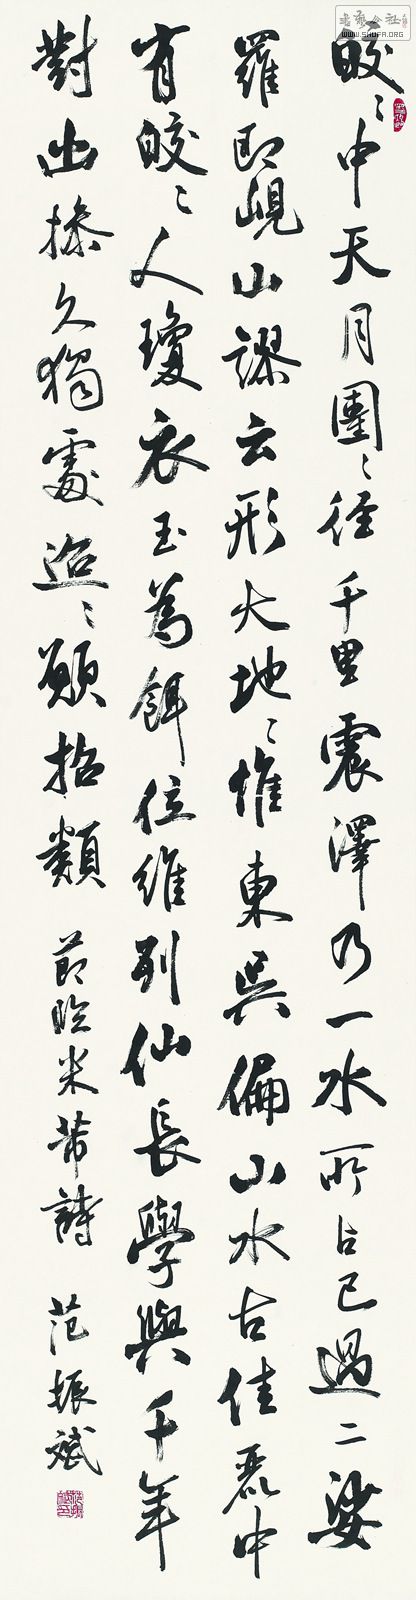 皎〻中天月團〻徑千里震澤乃一水所占已過二娑
羅即峴山謬云形大地〻惟東吳偏山水古佳麗中
有皎〻人瓊衣玉為餌位維列仙長學與千年
對幽操久獨處迢〻願招類 節臨米芾詩 范振斌
書藝公社
WWW.SHUFA.ORG